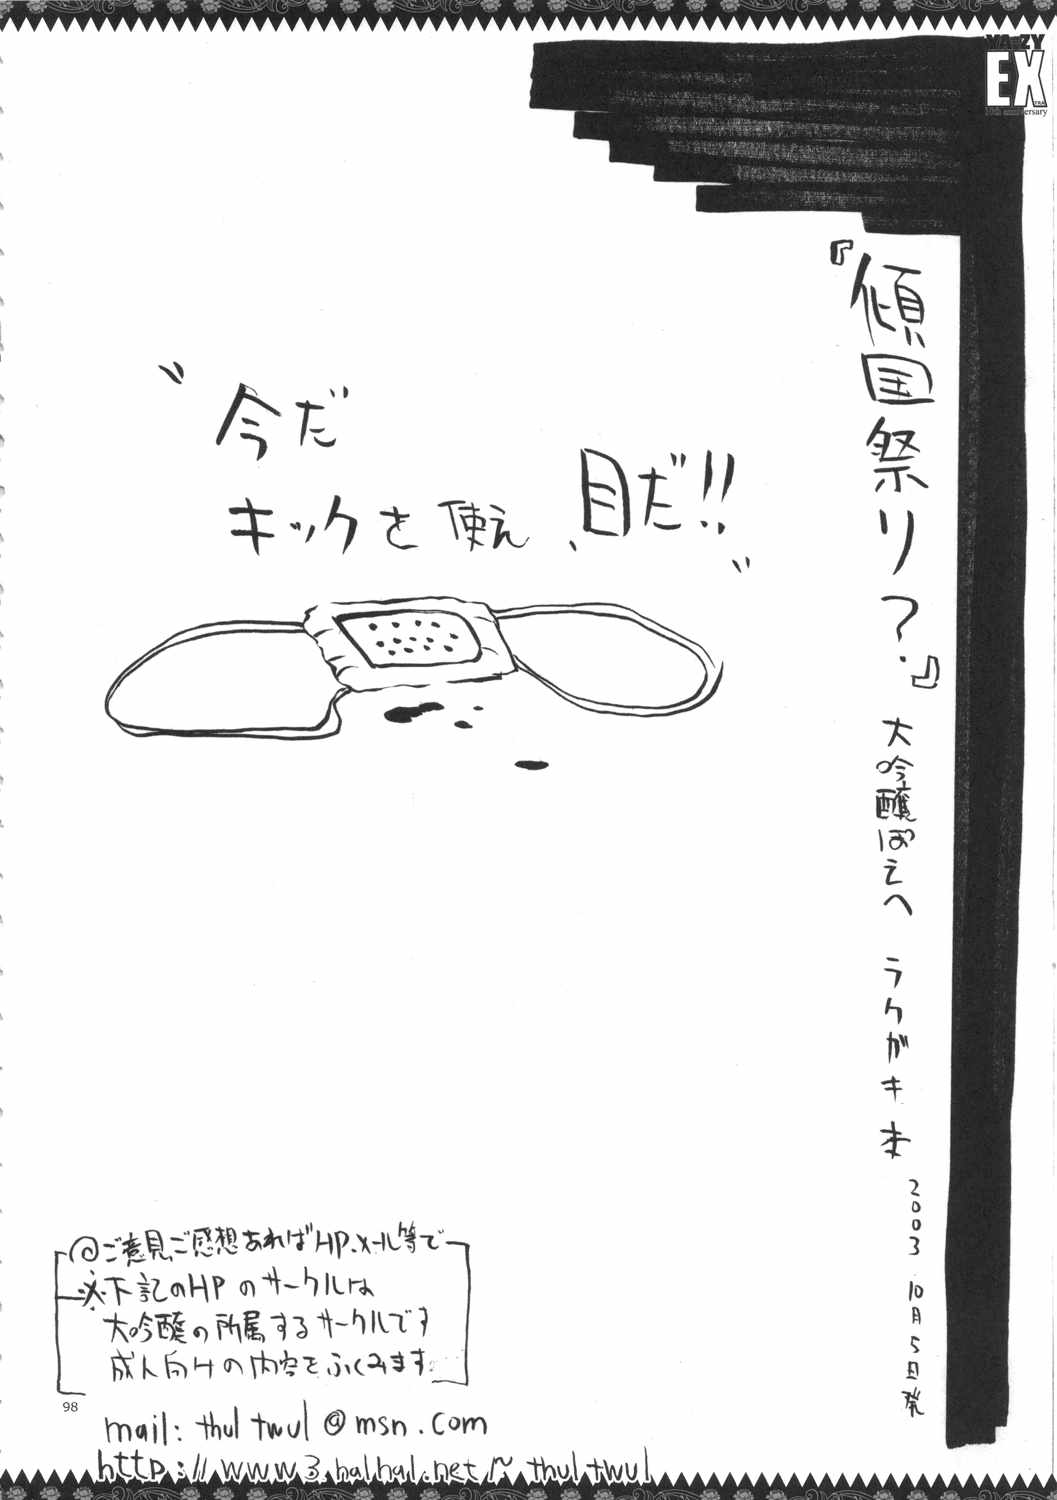 YA-ZY
EX
『傾国祭り？』
大吟醸ぽえへ ラクガキ本
2003 10月5日発
"今だ
キックを使え、目だ!!"
@ご意見、ご感想あればHP、メール等で
※下記のHPのサークルは
大吟醸の所属するサークルです
成人向けの内容をふくみます
98
mail: thul twul@msn.com
http://www3.halhal.net/~thultwul